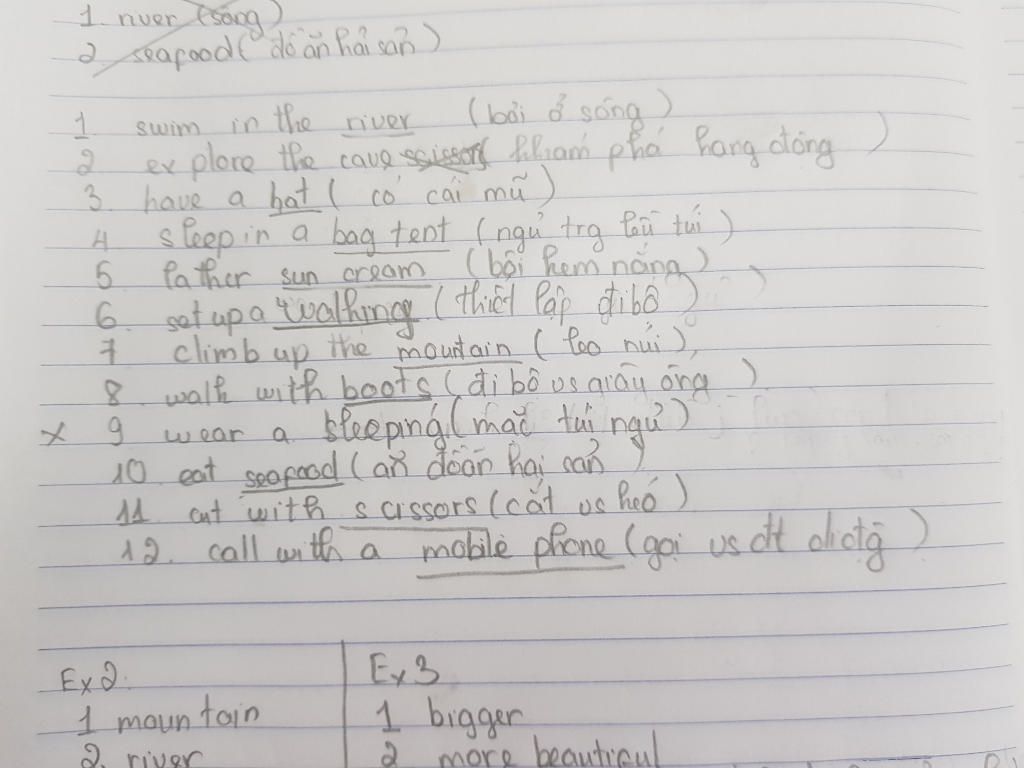 1. river (sông)
2. seafood ( đồ ăn hải sản )
1 swim in the river (bơi ở sông )
2 explore the cave khám phá hang động )
3. have a hat ( có cái mũ )
4 sleep in a bag tent (ngủ trg lều túi )
5 lather sun cream (bôi kem nắng )
6. set up a walking ( thiết lập đi bộ )
7 climb up the mountain ( leo núi ),
8 walk with boots ( đi bộ vs giày ống )
x 9 wear a sleeping ( mặc túi ngủ )
10 eat seafood ( ăn đồ ăn hải sản )
11 cut with scissors (cắt vs kéo )
12. call with a mobile phone (gọi vs đt di độg )
Ex 2.
1 mountain
2. river
Ex 3
1 bigger
2 more beautiful